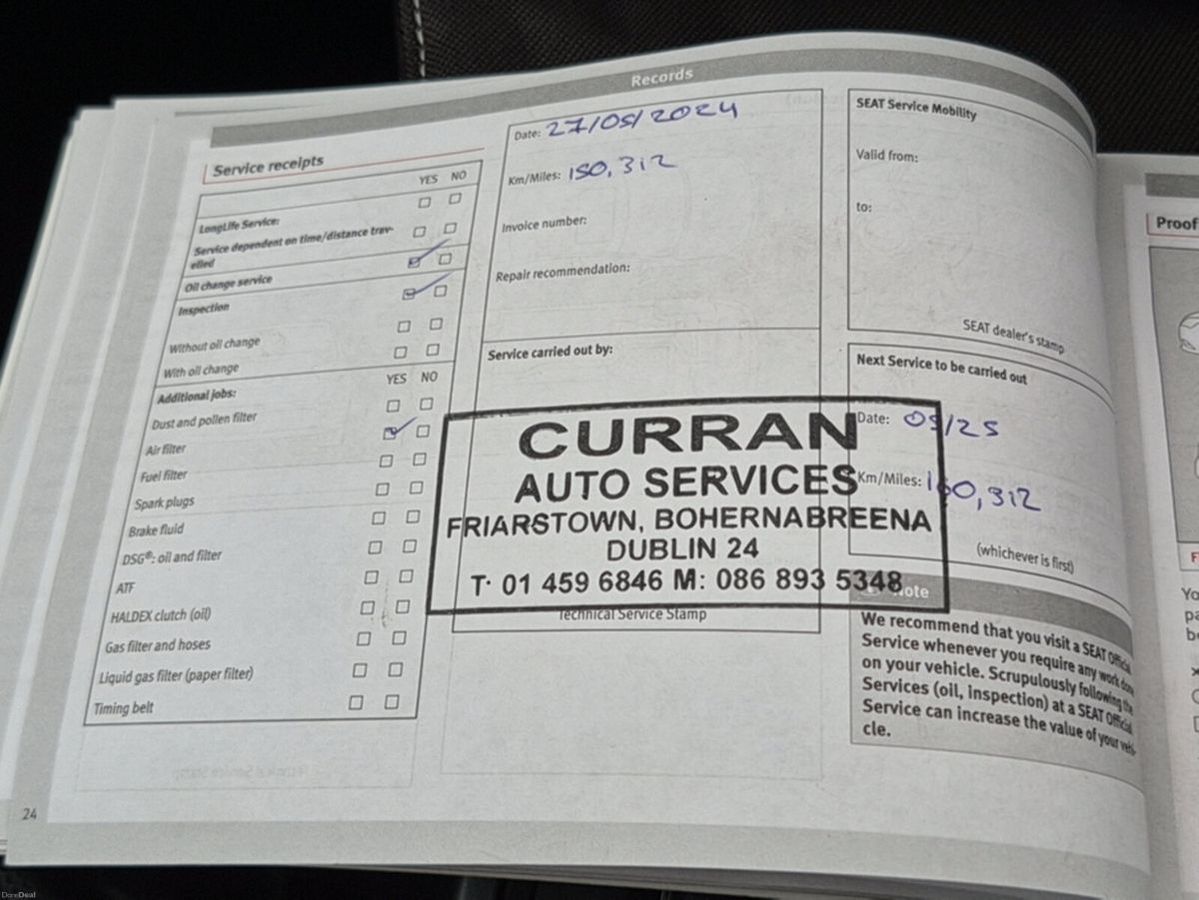 Records
Service receipts
YES NO
LongLife Service:
Service dependent on time/distance trav-
elled
Oil change service
Inspection
Without oil change
With oil change
Additional jobs:
YES NO
Dust and pollen filter
Air filter
Fuel filter
Spark plugs
Brake fluid
DSG®: oil and filter
ATF
HALDEX clutch (oil)
Gas filter and hoses
Liquid gas filter (paper filter)
Timing belt
24
Date: 27/05/2024
Km/Miles: 150,312
Invoice number:
Repair recommendation:
Service carried out by:
CURRAN
AUTO SERVICES
FRIARSTOWN, BOHERNABREENA
DUBLIN 24
T: 01 459 6846 M: 086 893 5348
Technical Service Stamp
SEAT Service Mobility
Valid from:
to:
SEAT dealer's stamp
Next Service to be carried out
Date: 05/25
Km/Miles: 160,312
(whichever is first)
Note
We recommend that you visit a SEAT Official
Service whenever you require any work done
on your vehicle. Scrupulously following the
Services (oil, inspection) at a SEAT Official
Service can increase the value of your vehi-
cle.
Proof
DoneDeal